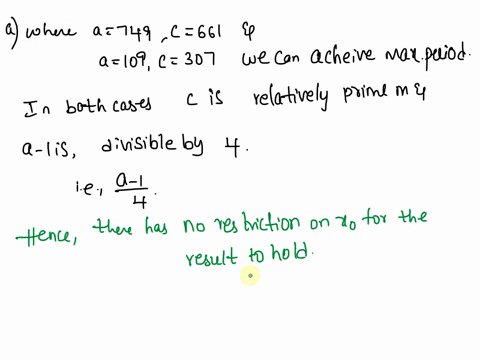 a) where a=749, c=661 &
a=109, c=307 we can acheive max.period.
In both cases c is relatively prime m &
a-1 is, divisible by 4.
i.e., a-1/4.
Hence, there has no restriction on x0 for the
result to hold.